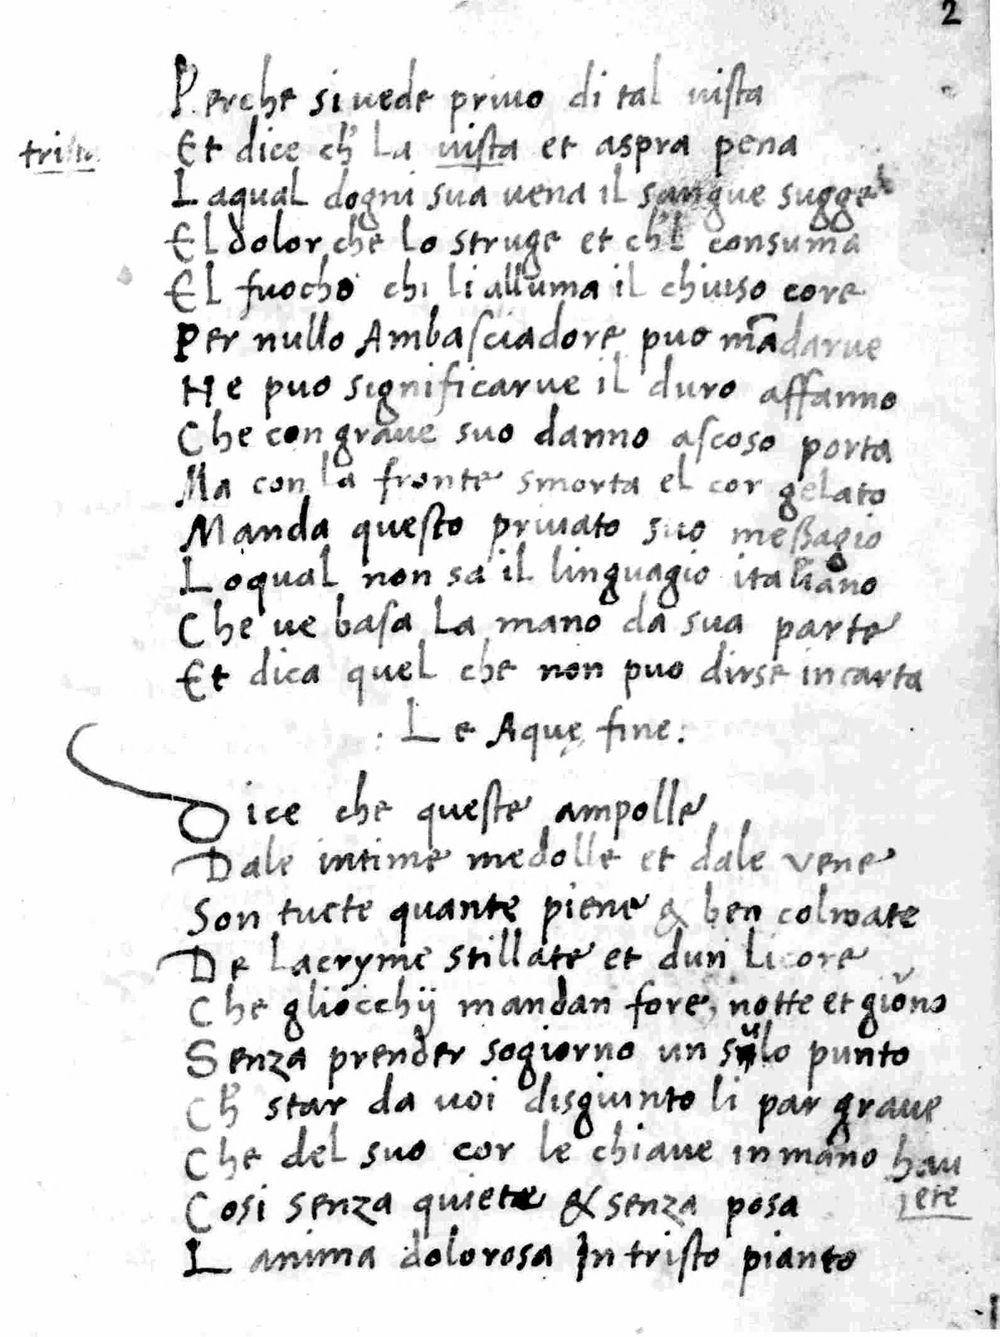 2
Perche si uede priuo di tal uista
trista Et dice ch' La uista et aspra pena
Laqual dogni sua uena il sangue sugge
El dolor che lo struge et ch'l consuma
El fuocho chi li alluma il chiuso core
Per nullo Ambasciadore puo mādarue
Ne puo significarue il duro affanno
Che con graue suo danno ascoso porta
Ma con la fronte smorta el cor gelato
Manda questo priuato suo meßagio
Loqual non sa il linguagio italiano
Che ue basa La mano da sua parte
Et dica quel che non puo dirse in carta
: Le Aquę fine :
Dice che queste ampolle
Dale intime medolle et dale vene
Son tucte quante piene & ben colmate
De Lacryme stillate et dun Licore
Che gliocchij mandan fore, notte et giorno
Senza prender sogiorno un sulo punto
Ch' star da uoi disgiunto li par graue
Che del suo cor le chiaue in mano hau
iete
Cosi senza quiete & senza posa
L anima dolorosa In tristo pianto